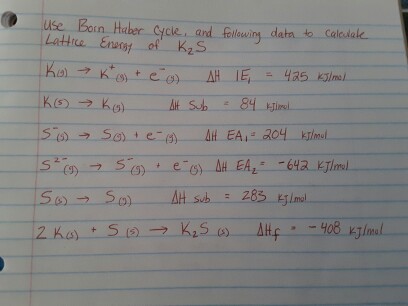 Use Born Haber Cycle, and following data to calculate
Lattice Energy of K₂S
K(g) → K⁺(g) + e⁻(g) ΔH IE₁ = 425 kJ/mol
K(s) → K(g) ΔH Sub = 84 kJ/mol
S⁻(g) → S(g) + e⁻(g) ΔH EA₁ = 204 kJ/mol
S²⁻(g) → S⁻(g) + e⁻(g) ΔH EA₂ = -642 kJ/mol
S(s) → S(g) ΔH Sub = 283 kJ/mol
2 K(s) + S(s) → K₂S(s) ΔHf = -408 kJ/mol